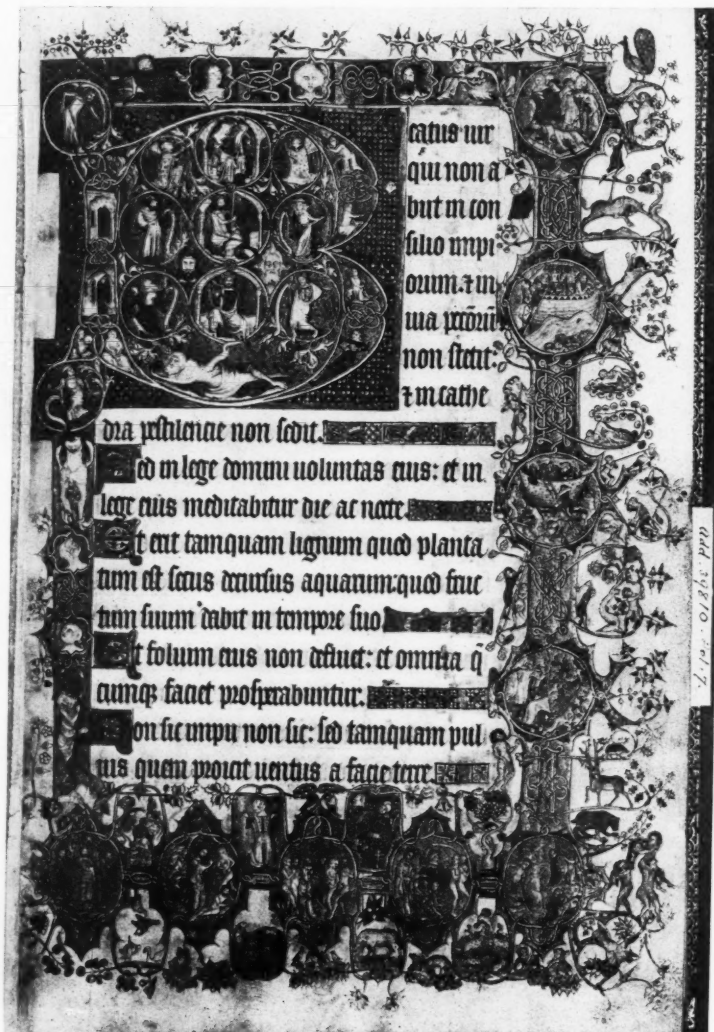 B eatus uir
qui non a
biit in con
silio impi
orum. ⁊ in
uia pc̄orū
non stetit:
⁊ in cathe
dra pestilencie non sedit.
Sed in lege domini uoluntas eius: et in
lege eius meditabitur die ac nocte.
Et erit tamquam lignum quod planta
tum est secus decursus aquarum: quod fruc
tum suum dabit in tempore suo.
Et folium eius non defluet: et omnia q̄
cumqꝫ faciet prosperabuntur.
Non sic impii non sic: sed tamquam pul
uis quem proicit uentus a facie terre.
Add 39810. fol. 7.